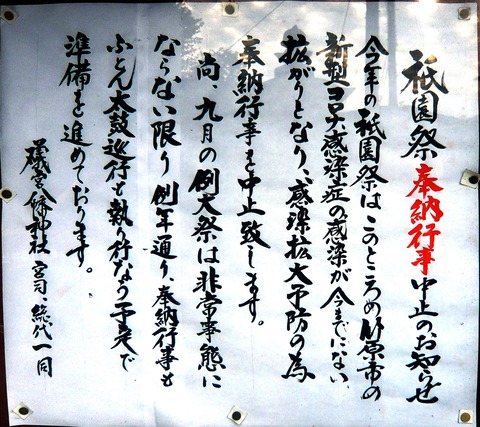 祇園祭奉納行事中止のお知らせ
今年の祇園祭はこのところの竹原市の
新型コロナ感染症の感染が今までにない
拡がりとなり、感染拡大予防の為
奉納行事を中止致します。
尚、九月の例大祭は非常事態に
ならない限り例年通り、奉納行事も
ふとん太鼓巡行も執り行なう予定で
準備を進めております。
礒宮八幡神社 宮司、総代一同